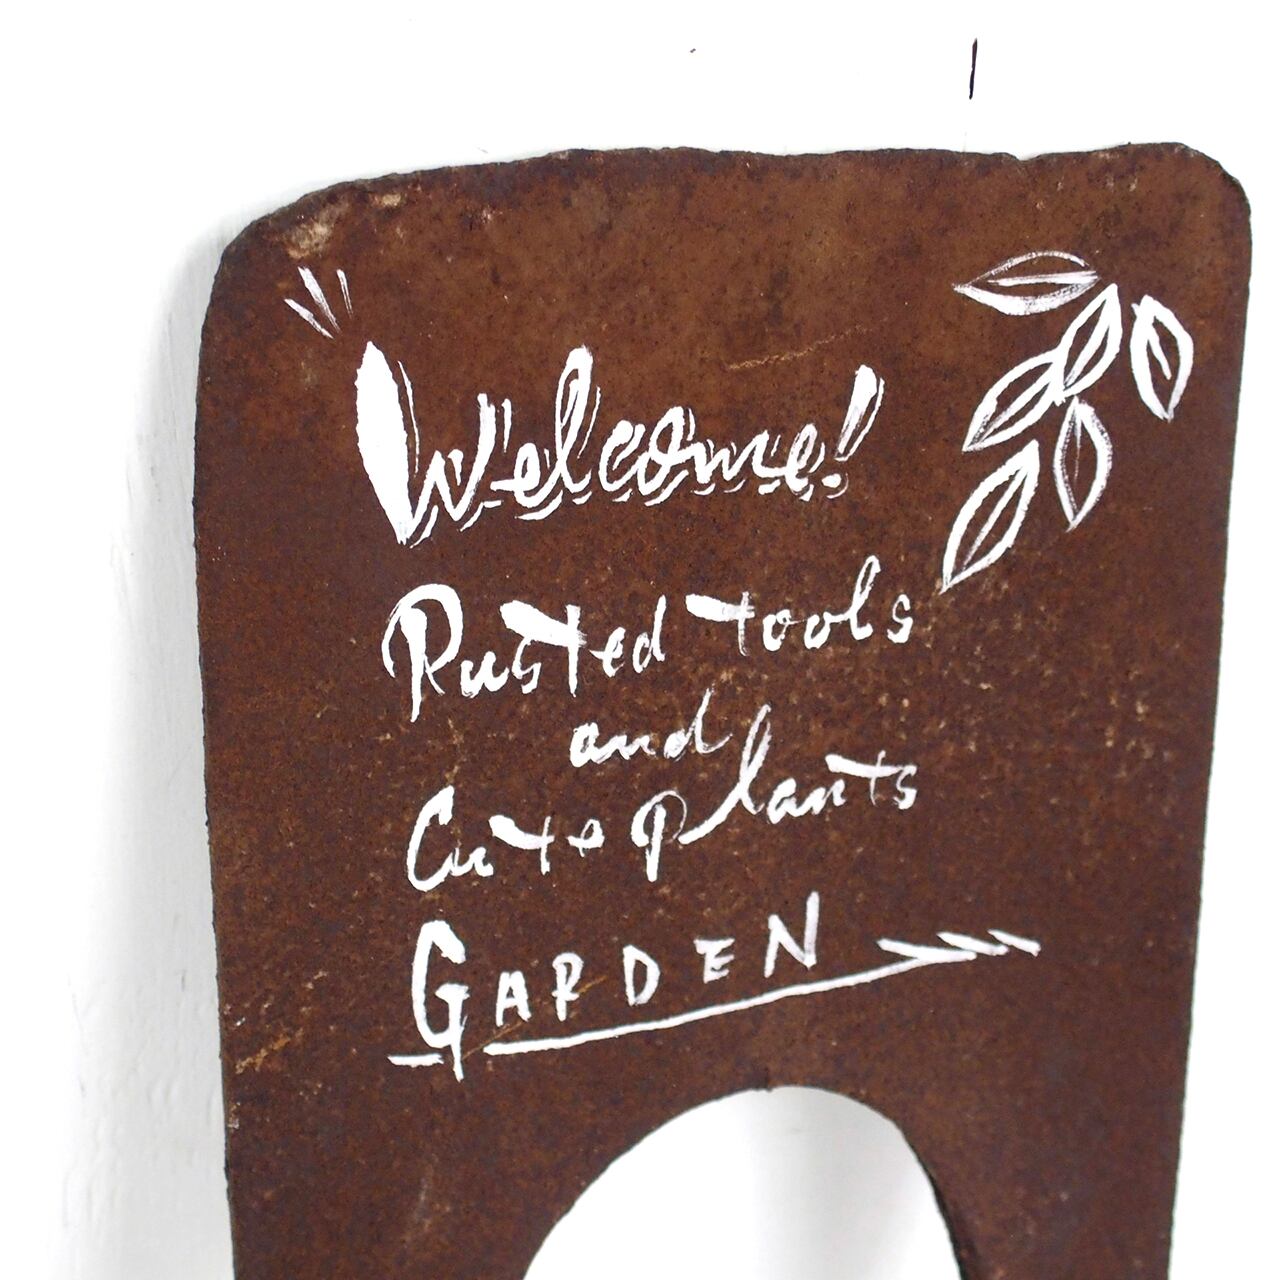 Welcome!
Rusted tools
and
Cute plants
GARDEN